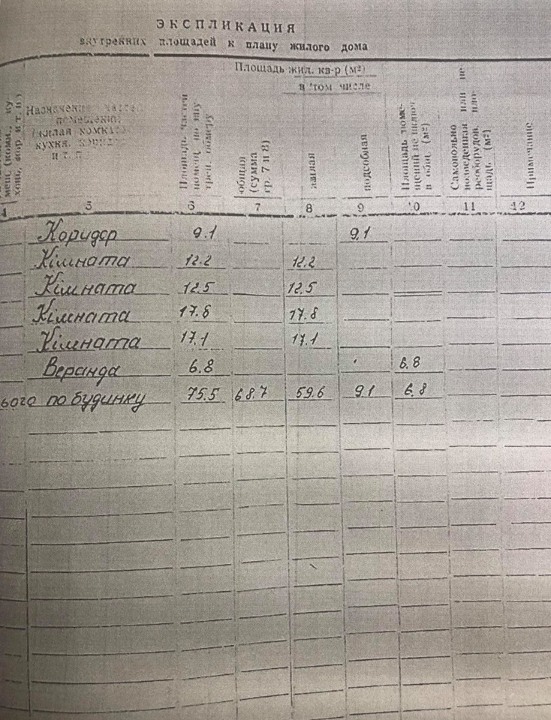 ЭКСПЛИКАЦИЯ
внутренних площадей к плану жилого дома
Площадь жил. кв-р (м²)
в том числе
Назначение частей помещения: (жилая комната, кухня, коридор и т. п.
общая (сумма гр. 7 и 8)
жилая
подсобная
(м²)
Самовольно или
(м²)
Примечание
4 5 6 7 8 9 10 11 12
Коридор 9.1 9.1
Кімната 12.2 12.2
Кімната 12.5 12.5
Кімната 17.8 17.8
Кімната 17.1 17.1
Веранда 6.8 6.8
ього по будинку 75.5 68.7 59.6 9.1 6.8